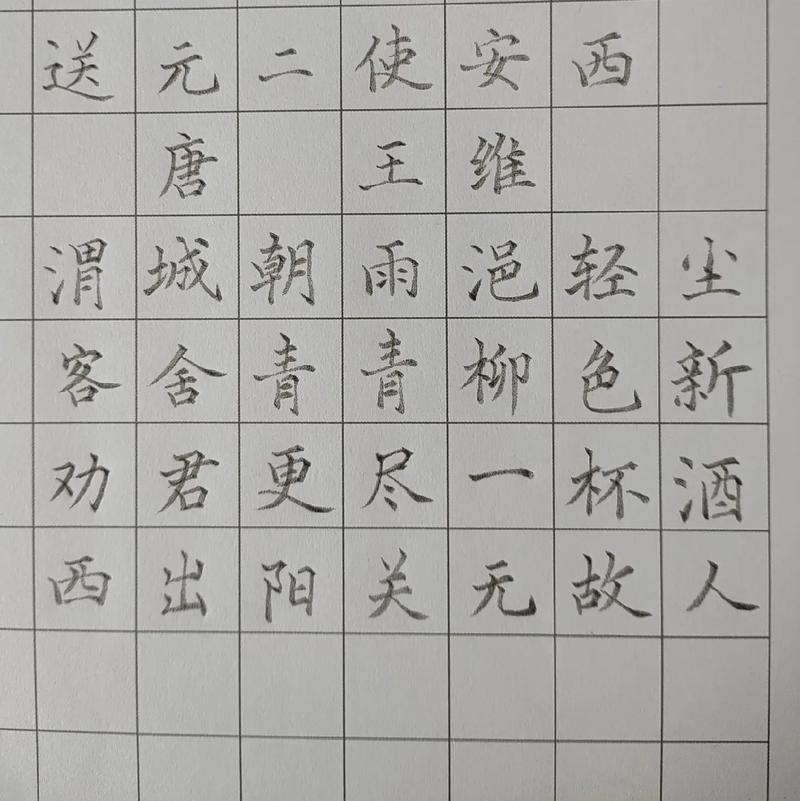 送元二使安西
唐 王维
渭城朝雨浥轻尘
客舍青青柳色新
劝君更尽一杯酒
西出阳关无故人